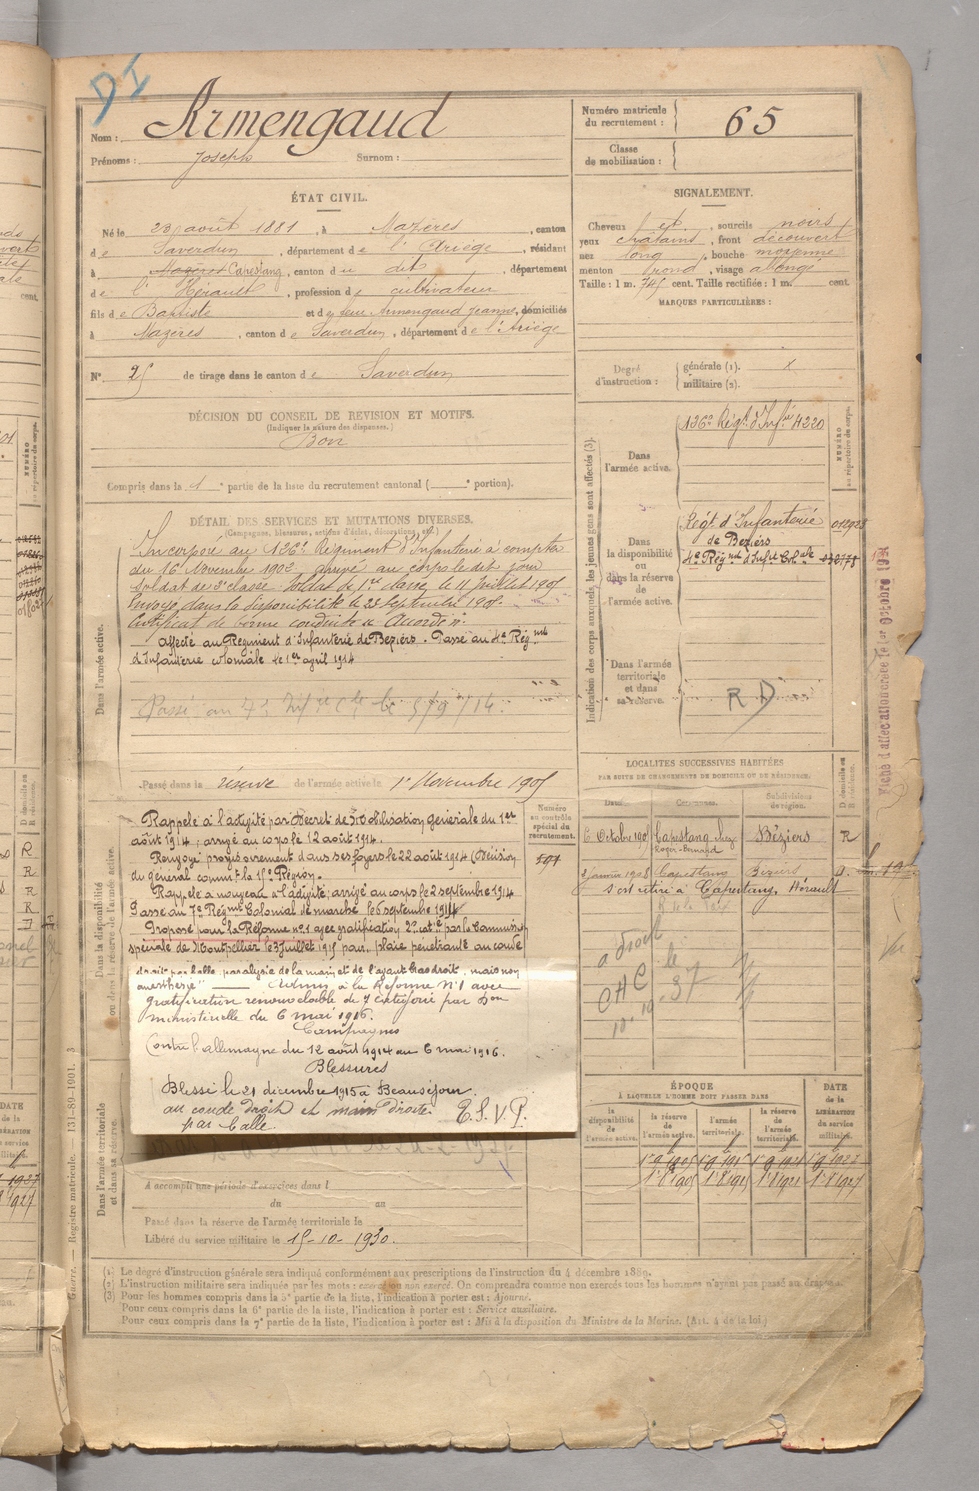 DI
Nom : Armengaud
Prénoms : Joseph Surnom :
Numéro matricule du recrutement : 65
Classe de mobilisation :
ÉTAT CIVIL.
Né le 23 août 1881, à Mazères, canton
de Saverdun, département de l'Ariège, résidant
à Mazères Capestang, canton du dit, département
de l'Hérault, profession de cultivateur
fils de Baptiste et de feue Armengaud Jeanne, domiciliés
à Mazères, canton de Saverdun, département de l'Ariège
N° 25 de tirage dans le canton de Saverdun
SIGNALEMENT.
Cheveux et, sourcils noirs
yeux châtains, front découvert
nez long, bouche moyenne
menton rond, visage allongé
Taille : 1 m. 745 cent. Taille rectifiée : 1 m. cent.
MARQUES PARTICULIÈRES :
Degré d'instruction : générale (1). X
militaire (2).
DÉCISION DU CONSEIL DE REVISION ET MOTIFS.
(Indiquer la nature des dispenses.)
Bon
Compris dans la 1e partie de la liste du recrutement cantonal ( e portion).
DÉTAIL DES SERVICES ET MUTATIONS DIVERSES.
(Campagnes, blessures, actions d'éclat, décorations, etc.)
Dans l'armée active.
Incorporé au 126e Régiment d'Infanterie à compter
du 16 Novembre 1902 arrivé au corps le dit jour
soldat de 2e classe. Soldat de 1re classe le 11 Juillet 1905
Envoyé dans la disponibilité le 23 Septembre 1905.
Certificat de bonne conduite "Accordé".
Affecté au Régiment d'Infanterie de Béziers. Passé au 4e Régmt
d'Infanterie coloniale le 1er avril 1914
Passé au 7e Infie Cle le 5/9/14.
Passé dans la réserve de l'armée active le 1er Novembre 1905
Indication des corps auxquels les jeunes gens sont affectés (3).
NUMÉRO au répertoire du corps.
Dans l'armée active.
126e Régt d'Infie 4220
Dans la disponibilité ou dans la réserve de l'armée active.
Régt d'Infanterie de Béziers 012923
4e Régmt d'Inf Coloale
Dans l'armée territoriale et dans sa réserve.
R D
Fiche d'affectation créée le 1er Octobre
Dans la disponibilité ou dans la réserve de l'armée active
Numéro au contrôle spécial du recrutement.
507
Rappelé à l'activité par Décret de Mobilisation Générale du 1er
août 1914, arrivé au corps le 12 août 1914.
Renvoyé provisoirement dans ses foyers le 22 août 1914 (Décision
du général commt la 16e Région.
Rappelé à nouveau à l'activité, arrivé au corps le 2 septembre 1914
Passé au 7e Régmt Colonial de marche le 6 septembre 1914
Proposé pour la Réforme n° 1 avec gratification 2e catie par la Commission
spéciale de Montpellier le 3 juillet 1915 pour, plaie pénétrante au coude
droit par balle, paralysie de la main et de l'avant bras droit, mais non
anesthésie" Admis à la Réforme N° 1 avec
gratification renouvelable de 7 catégorie par Don
ministérielle du 6 mai 1916.
Campagnes
Contre l'allemagne du 12 août 1914 au 6 mai 1916.
Blessures
Blessé le 21 décembre 1915 à Beauséjour
au coude droit et main droite.
par balle
E.S.V.P.
LOCALITÉS SUCCESSIVES HABITÉES
PAR SUITE DE CHANGEMENTS DE DOMICILE OU DE RÉSIDENCE.
Dates. Communes. Subdivisions de région. D domicile ou R résidence.
6 Octobre 1905 Capestang chez Roger-Bernard Béziers R
2 janvier 1908 Capestang Béziers D.
s'est retiré à Capestang, Hérault
a droit
le
CHC 37
10.10
ÉPOQUE
À LAQUELLE L'HOMME DOIT PASSER DANS
DATE de la LIBÉRATION du service militaire.
la disponibilité de l'armée active. la réserve de l'armée active. l'armée territoriale. la réserve de l'armée territoriale.
1er 9 1905 1er 9 1915 1er 9 1921 1er 9 1927
1er 8 1905 1er 8 1915 1er 8 1921 1er 8 1927
Dans l'armée territoriale et dans sa réserve.
A accompli une période d'exercices dans l
du au
Passé dans la réserve de l'armée territoriale le
Libéré du service militaire le 15-10-1930.
(1) Le degré d'instruction générale sera indiqué conformément aux prescriptions de l'instruction du 4 décembre 1889.
(2) L'instruction militaire sera indiquée par les mots : exercé ou non exercé. On comprendra comme non exercés tous les hommes n'ayant pas passé au drapeau.
(3) Pour les hommes compris dans la 5e partie de la liste, l'indication à porter est : Ajourné.
Pour ceux compris dans la 6e partie de la liste, l'indication à porter est : Service auxiliaire.
Pour ceux compris dans la 7e partie de la liste, l'indication à porter est : Mis à la disposition du Ministre de la Marine. (Art. 4 de la loi.)
Guerre. — Registre matricule. — 131-89-1901. 3